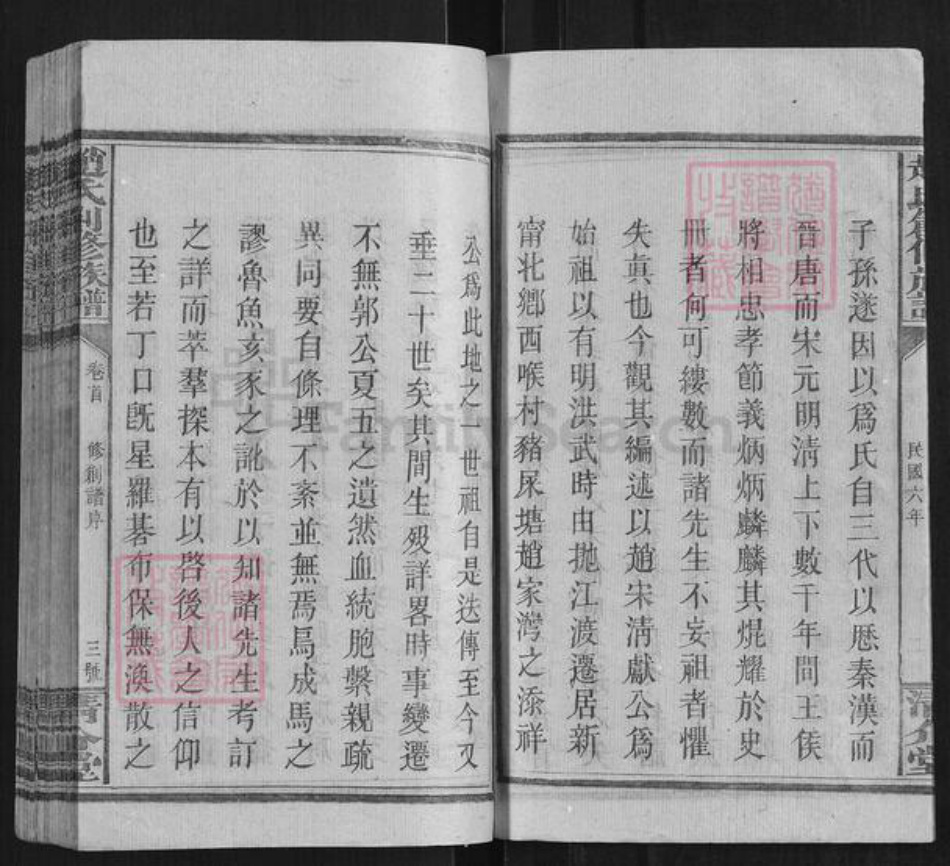 民國六年
子孫遂因以爲氏自三代以歷秦漢而
晉唐而宋元明清上下數千年間王侯
將相忠孝節義炳炳麟麟其焜耀於史
冊者何可縷數而諸先生不妄祖者懼
失眞也今觀其編述以趙宋清獻公爲
始祖以有明洪武時由拋江渡遷居新
甯北鄉西喉村豬尿塘趙家灣之添祥
公爲此地之一世祖自是迭傳至今又
垂二十世矣其間生歿詳畧時事變遷
不無郭公夏五之遺然血統胞繫親疏
異同要自條理不紊並無焉烏成馬之
謬魯魚亥豕之訛於以知諸先生考訂
之詳而萃羣探本有以啓後人之信仰
也至若丁口旣星羅碁布保無渙散之
趙氏創修族譜
卷首
修創譜序
三號
清介堂
FamilySearch